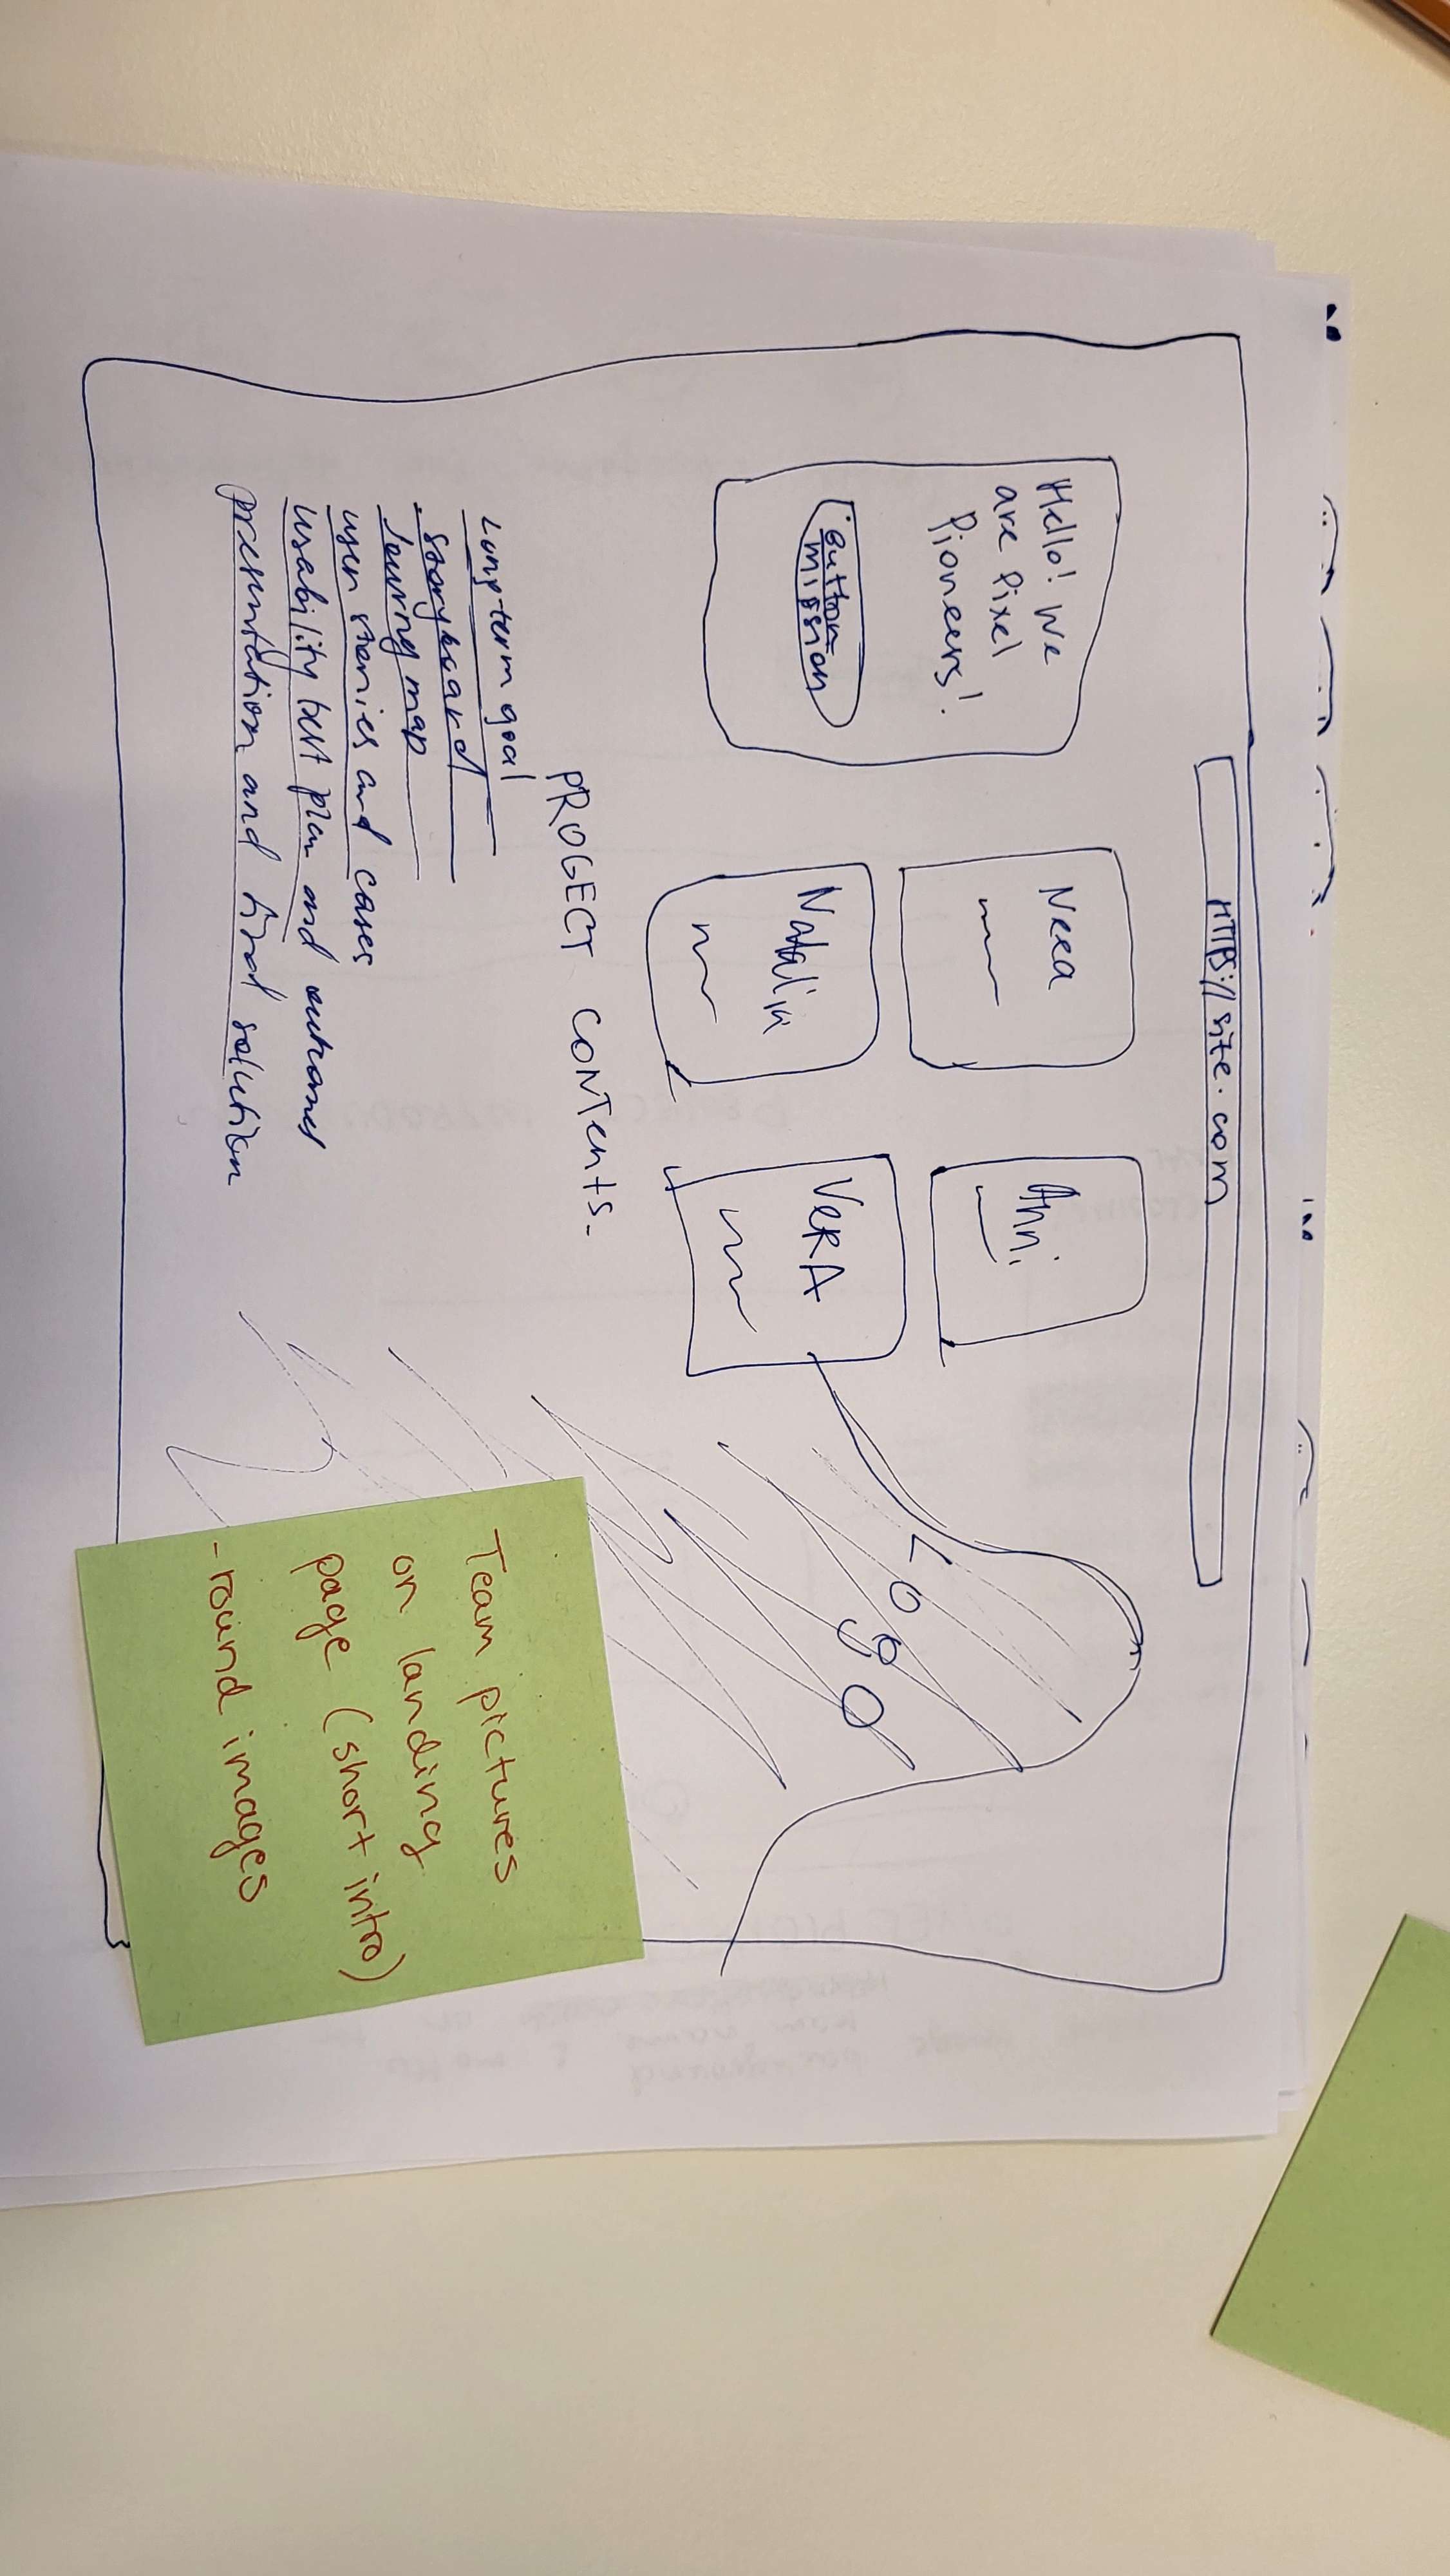 HTTPS:// site.com
Hello! We
are Pixel
Pioneers!
Button
mission
Neea
Anni
Natalia
VERA
Logo
PROGECT CONTents
Long-term goal
storyboard
Journy map
user stories and cases
usability test plan and outcomes
presentation and final solution
Team pictures
on landing
page (short intro)
- round images